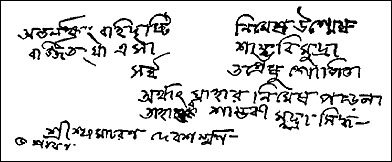 অন্তর্লক্ষ্যং বহির্দৃষ্টি নিমেষ উন্মেষ
বর্জ্জিতা যা এ সা শাম্ভবি মুদ্রা
সর্ব্ব তন্ত্রেষু গোপিতা
অর্থাৎ যাহার নিমেষ পড়েনা
তাহারই শাম্ভবী মুদ্রা সিদ্ধ
শ্রীশ্যামাচরণ দেবশর্ম্মণ